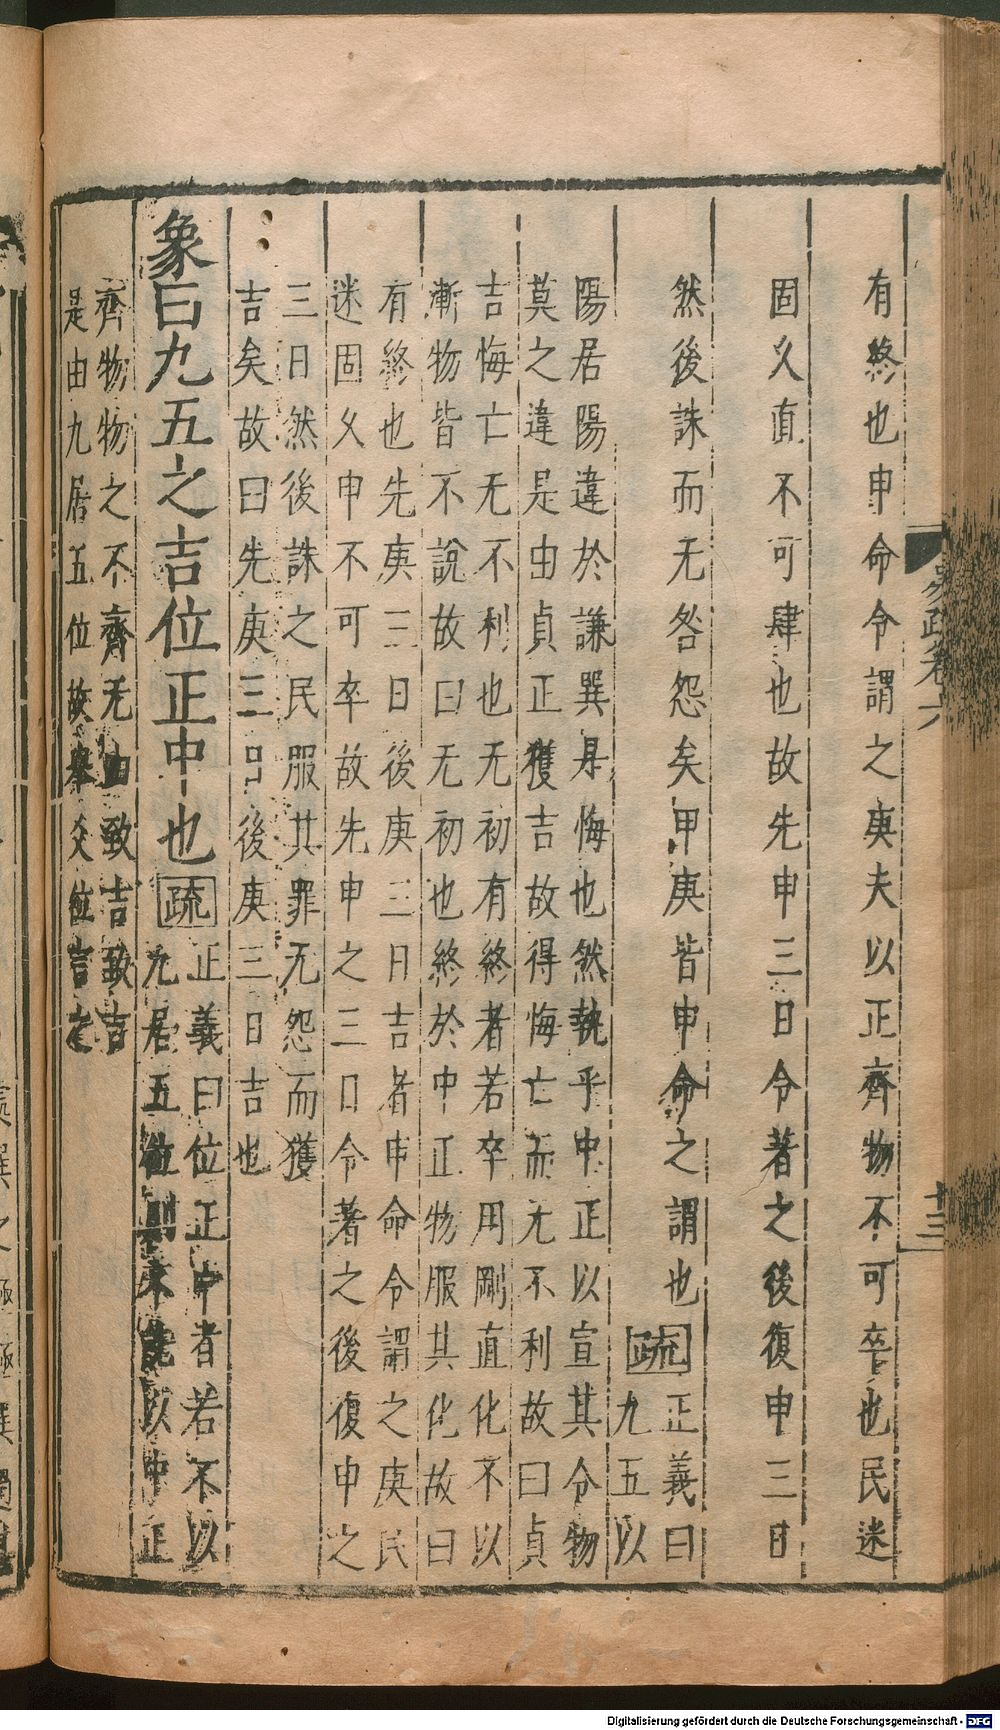 有終也申命令謂之庚夫以正齊物不可卒也民迷
固乆直不可肆也故先申三日令著之後復申三日
然後誅而无咎怨矣甲庚皆申命之謂也疏正義曰
九五以
陽居陽違於謙巽是悔也然執乎中正以宣其令物
莫之違是由貞正獲吉故得悔亡而无不利故曰貞
吉悔亡无不利也无初有終者若卒用剛直化不以
漸物皆不說故曰无初也終於中正物服其化故曰
有終也先庚三日後庚三日吉者申命令謂之庚民
迷固乆申不可卒故先申之三日令著之後復申之
三日然後誅之民服其罪无怨而獲
吉矣故曰先庚三日後庚三日吉也
象曰九五之吉位正中也疏正義曰位正中者若不以
九居五位則不能以中正
齊物物之不齊无由致吉致吉
是由九居五位故舉爻位言之
易疏卷六
十三
Digitalisierung gefördert durch die Deutsche Forschungsgemeinschaft - DFG